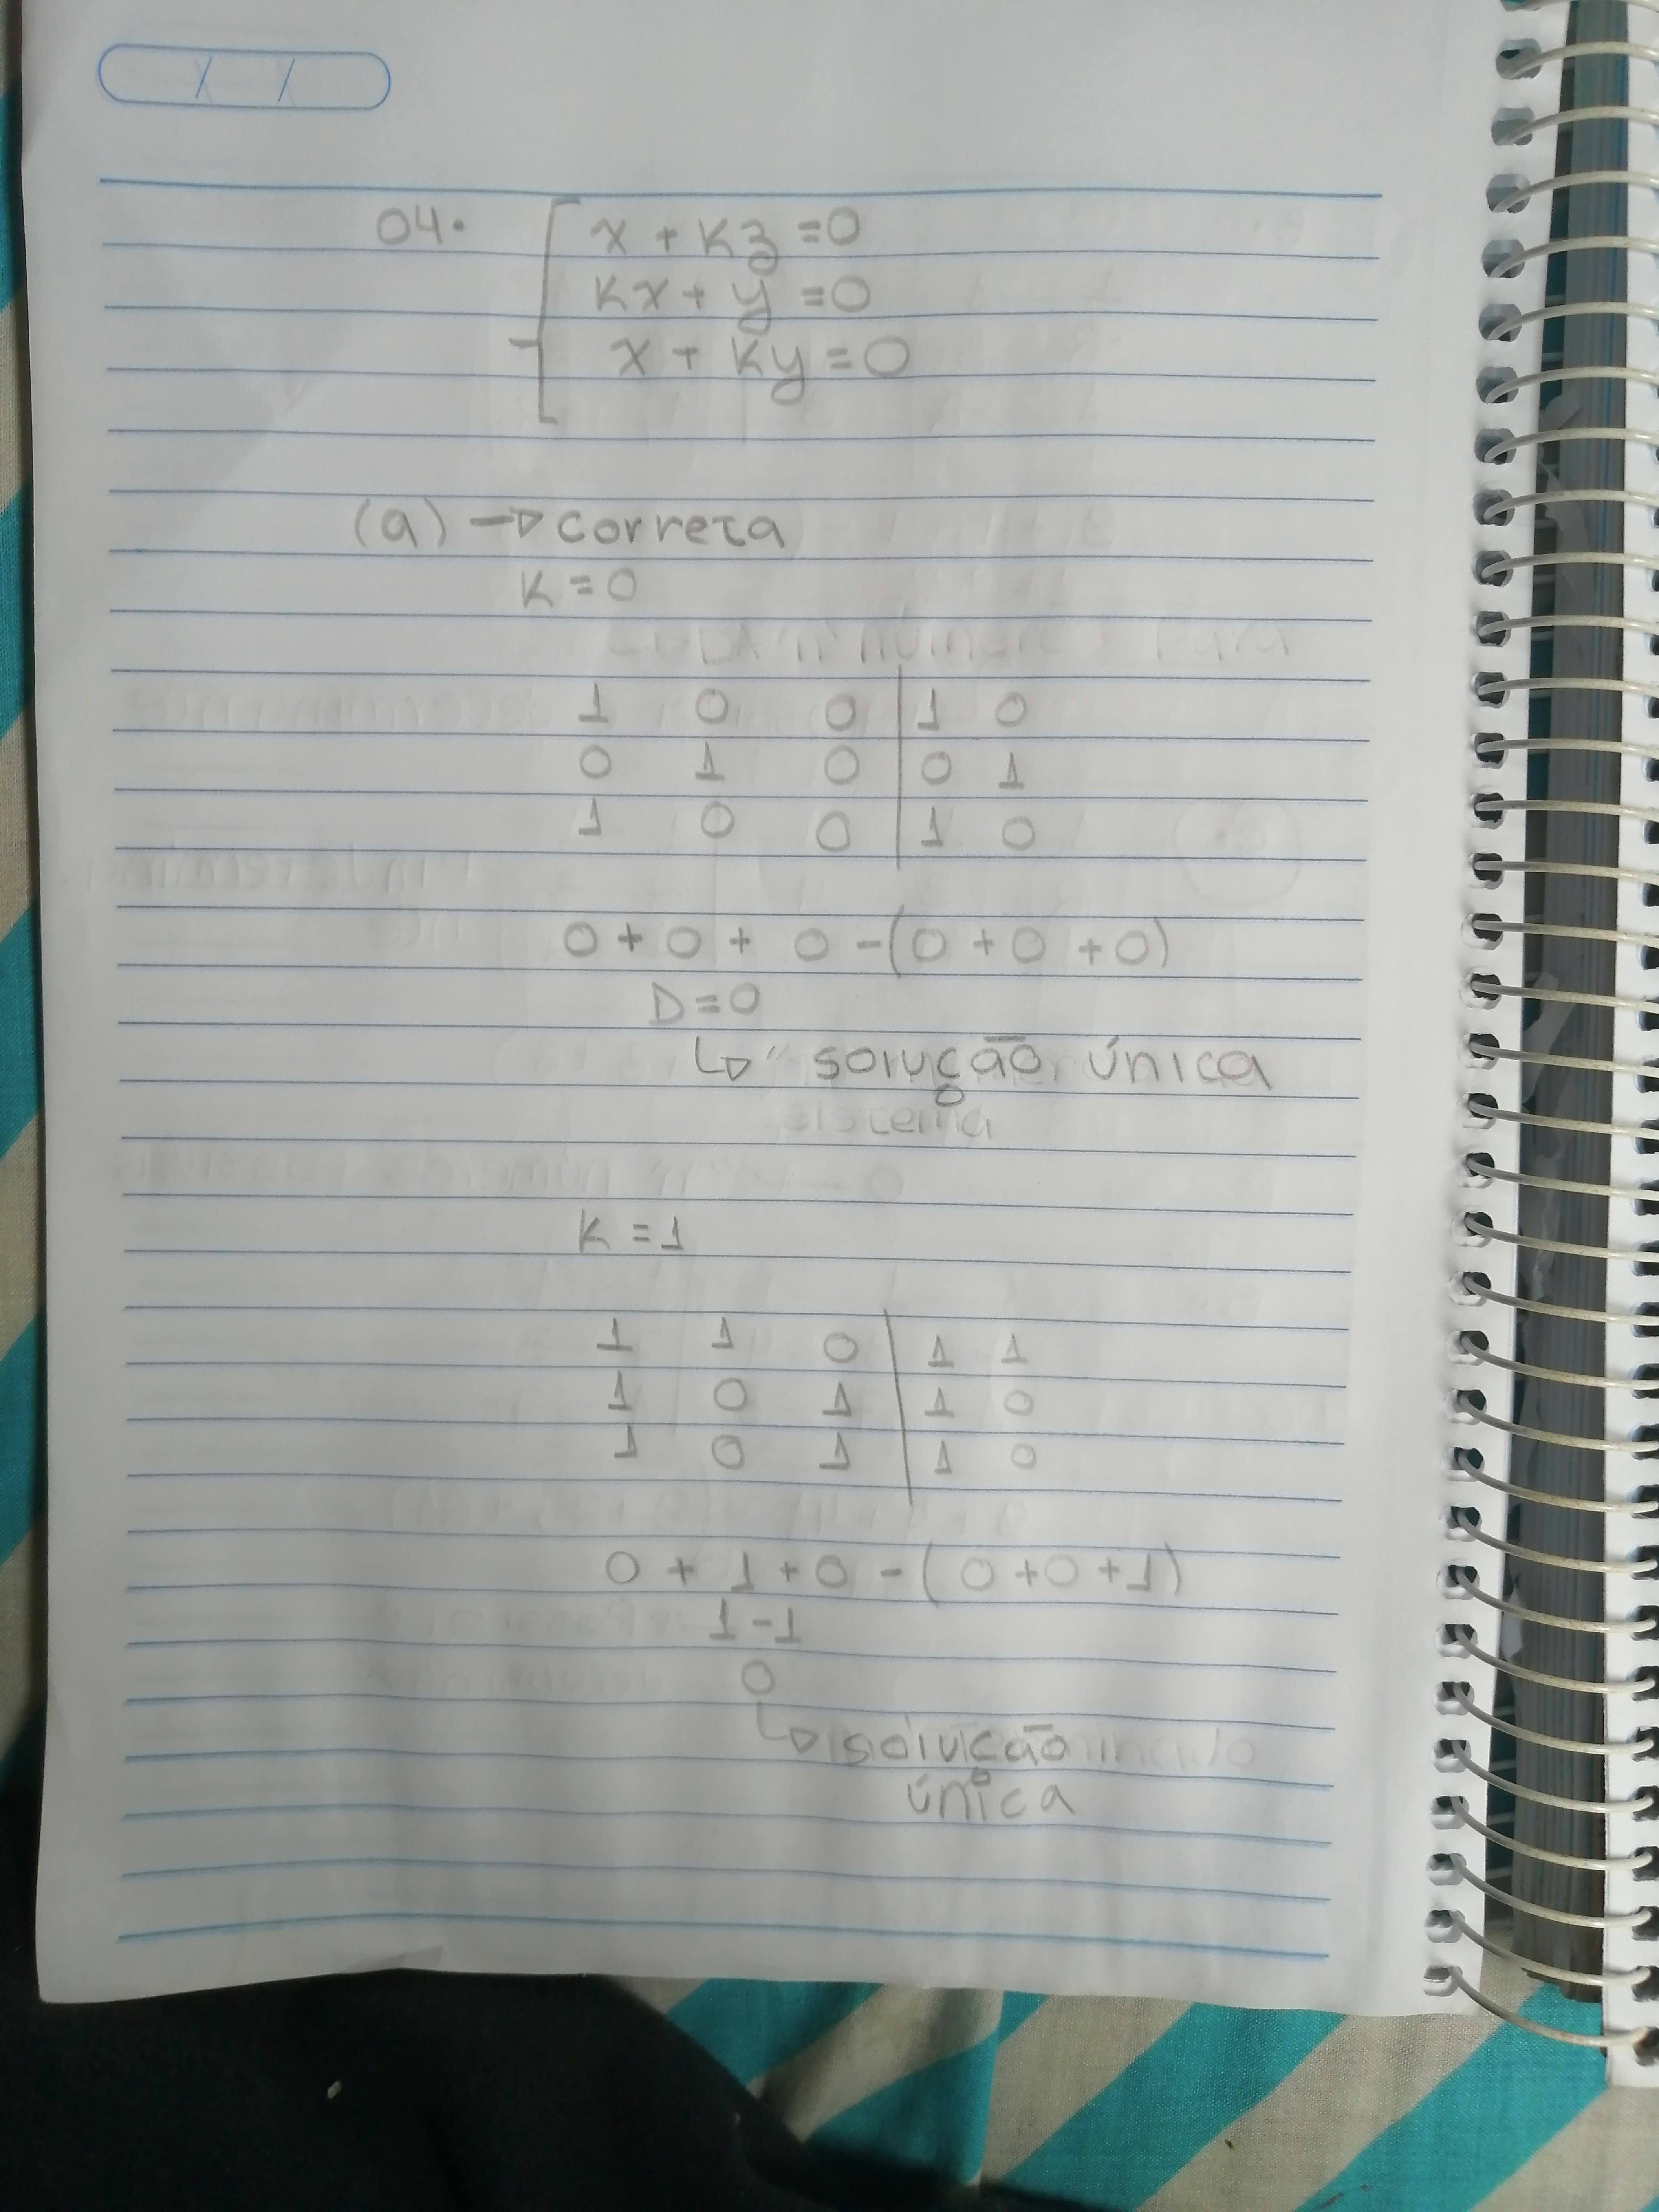 04.
x + Kz = 0
Kx + y = 0
x + Ky = 0
(a) → correta
K = 0
1 0 0 | 1 0
0 1 0 | 0 1
1 0 0 | 1 0
0 + 0 + 0 - (0 + 0 + 0)
D = 0
↳ " solução única
K = 1
1 1 0 | 1 1
1 0 1 | 1 0
1 0 1 | 1 0
0 + 1 + 0 - (0 + 0 + 1)
1 - 1
0
↳ solução
única